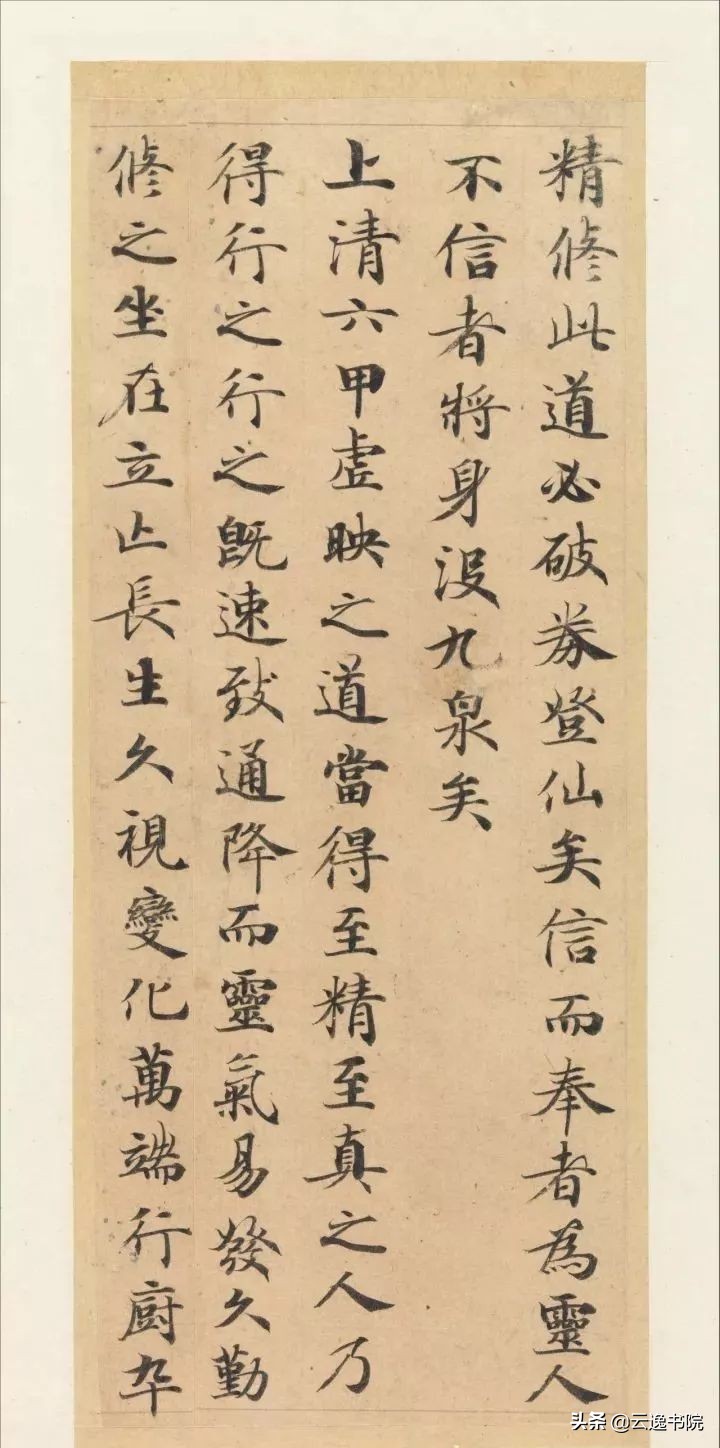 精修此道必破券登仙矣信而奉者為靈人
不信者將身没九泉矣
上清六甲虛映之道當得至精至真之人乃
得行之行之既速致通降而靈氣易發久勤
修之坐在立亡長生久視變化萬端行廚卒
头条 @云逸书院